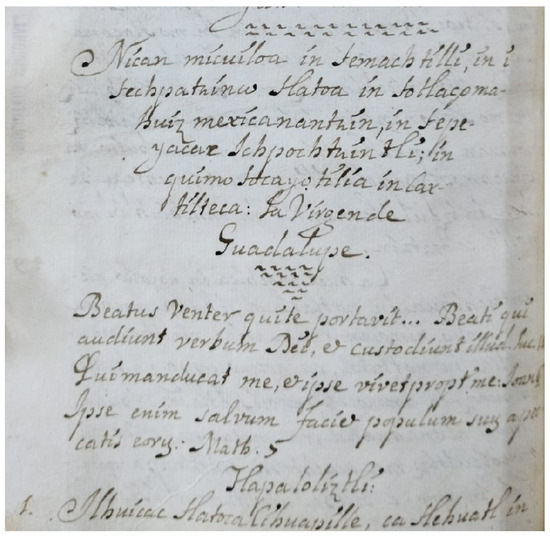 Nican micuiloa in temachtilli, in i
techpatzinco tlatoa in totlaçoma-
huiz mexicanantzin, in tepe-
yacac Ichpochtzintli; in
quimotocayotilia in Cax-
tilteca: La Virgen de
Guadalupe.
Beatus Venter qui te portavit... Beati qui
audiunt verbum Dei, et custodiunt illud. Luc. 11
Qui manducat me, et ipse vivet propt. me: Joan. 6
Ipse enim salvum faciet populum suũ a pec
catis eorũ. Math.
Tlapaloliztli:
1. Ilhuicac tlatoca Cihuapille, ca tlehuatl in